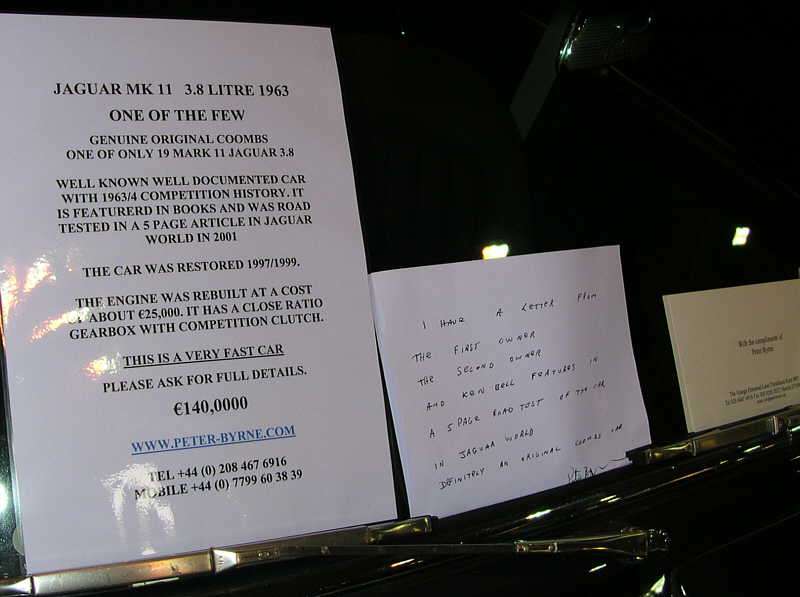 JAGUAR MK 11 3.8 LITRE 1963
ONE OF THE FEW
GENUINE ORIGINAL COOMBS
ONE OF ONLY 19 MARK 11 JAGUAR 3.8
WELL KNOWN WELL DOCUMENTED CAR
WITH 1963/4 COMPETITION HISTORY. IT
IS FEATURERD IN BOOKS AND WAS ROAD
TESTED IN A 5 PAGE ARTICLE IN JAGUAR
WORLD IN 2001
THE CAR WAS RESTORED 1997/1999.
THE ENGINE WAS REBUILT AT A COST
OF ABOUT €25,000. IT HAS A CLOSE RATIO
GEARBOX WITH COMPETITION CLUTCH.
THIS IS A VERY FAST CAR
PLEASE ASK FOR FULL DETAILS.
€140,0000
WWW.PETER-BYRNE.COM
TEL +44 (0) 208 467 6916
MOBILE +44 (0) 7799 60 38 39
I HAVE A LETTER FROM
THE FIRST OWNER
THE SECOND OWNER
AND KEN BELL FEATURES IN
A 5 PAGE ROAD TEST OF THE CAR
IN JAGUAR WORLD
DEFINITELY AN ORIGINAL COOMBS CAR
With the compliments of
Peter Byrne